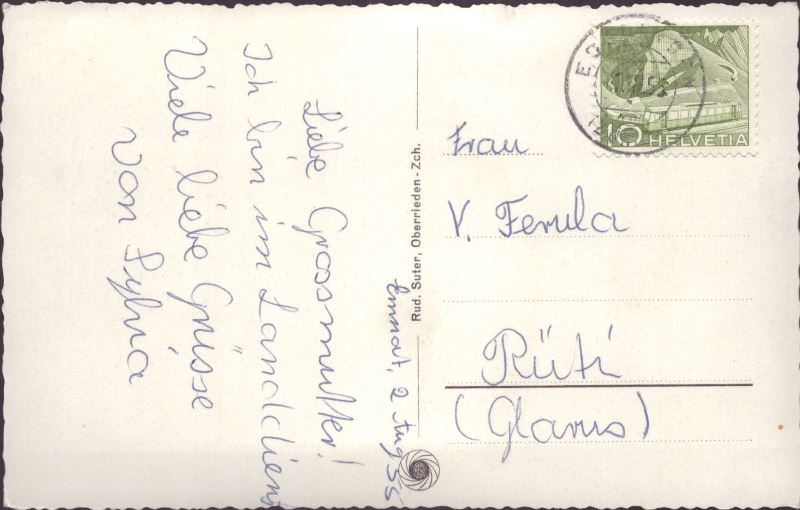 Liebe Grossmutter!
Ich bin im Landdienst
Viele liebe Grüsse
von Sylvia
2 Aug 55
Rud. Suter, Oberrieden - Zch.
10 HELVETIA
Frau
V. Ferula
Rüti
(Glarus)